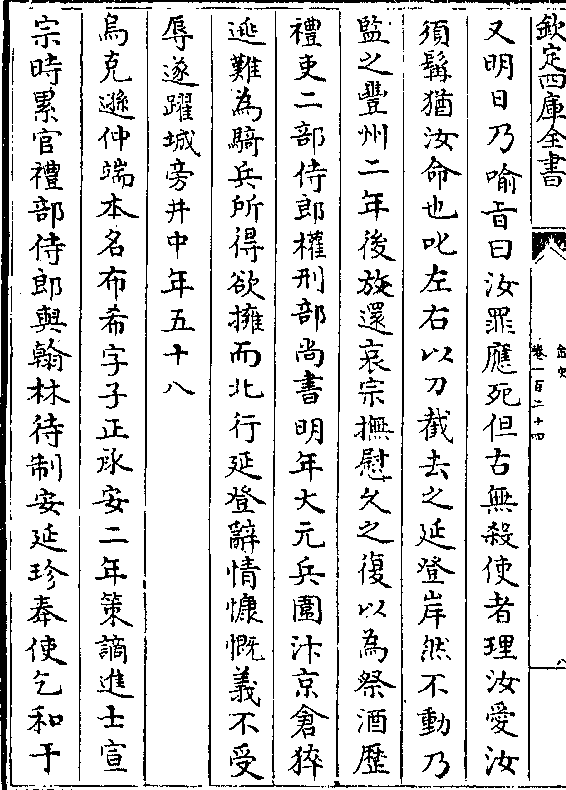 欽定四庫全書
金史
卷一百二十四
八
又明日乃喻㫖曰汝罪應死但古無殺使者理汝愛汝
須髯猶汝命也叱左右以刀截去之延登岸然不動乃
監之豐州二年後放還哀宗撫慰久之復以為祭酒歴
禮吏二部侍郎權刑部尚書明年大元兵圍汴京倉猝
逃難為騎兵所得欲擁而北行延登辭情慷慨義不受
辱遂躍城旁井中年五十八
烏克遜仲端本名布希字子正承安二年策論進士宣
宗時累官禮部侍郎與翰林待制安延珍奉使乞和于